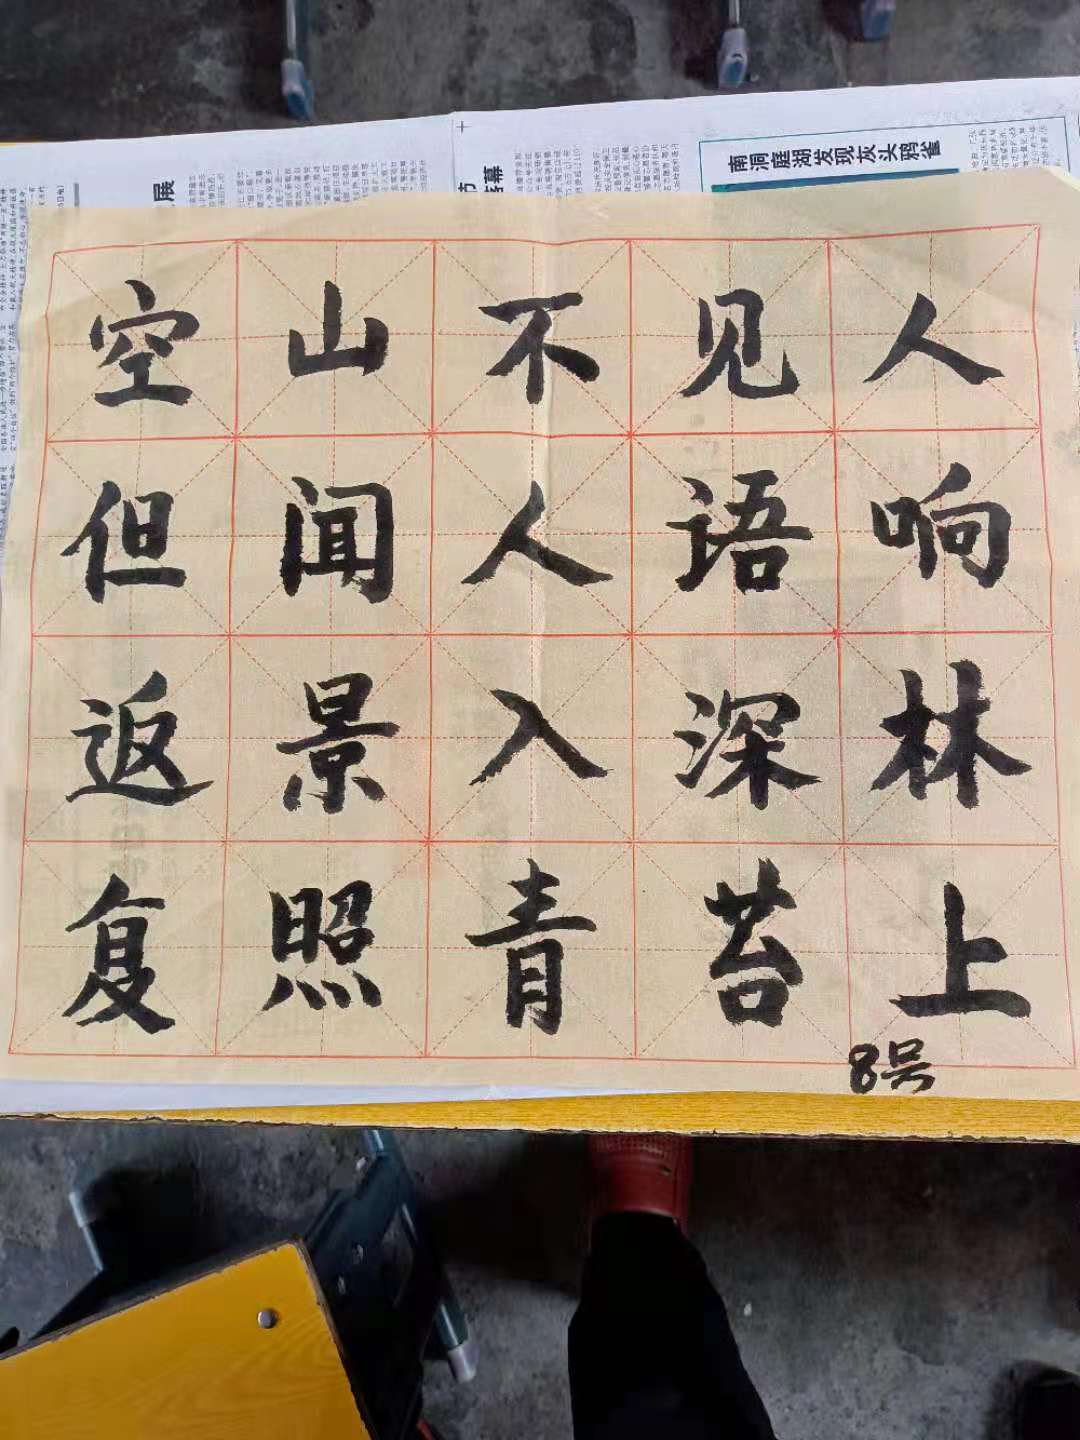 南洞庭湖发现灰头鸦雀
展
空山不见人
但闻人语响
返景入深林
复照青苔上
8号